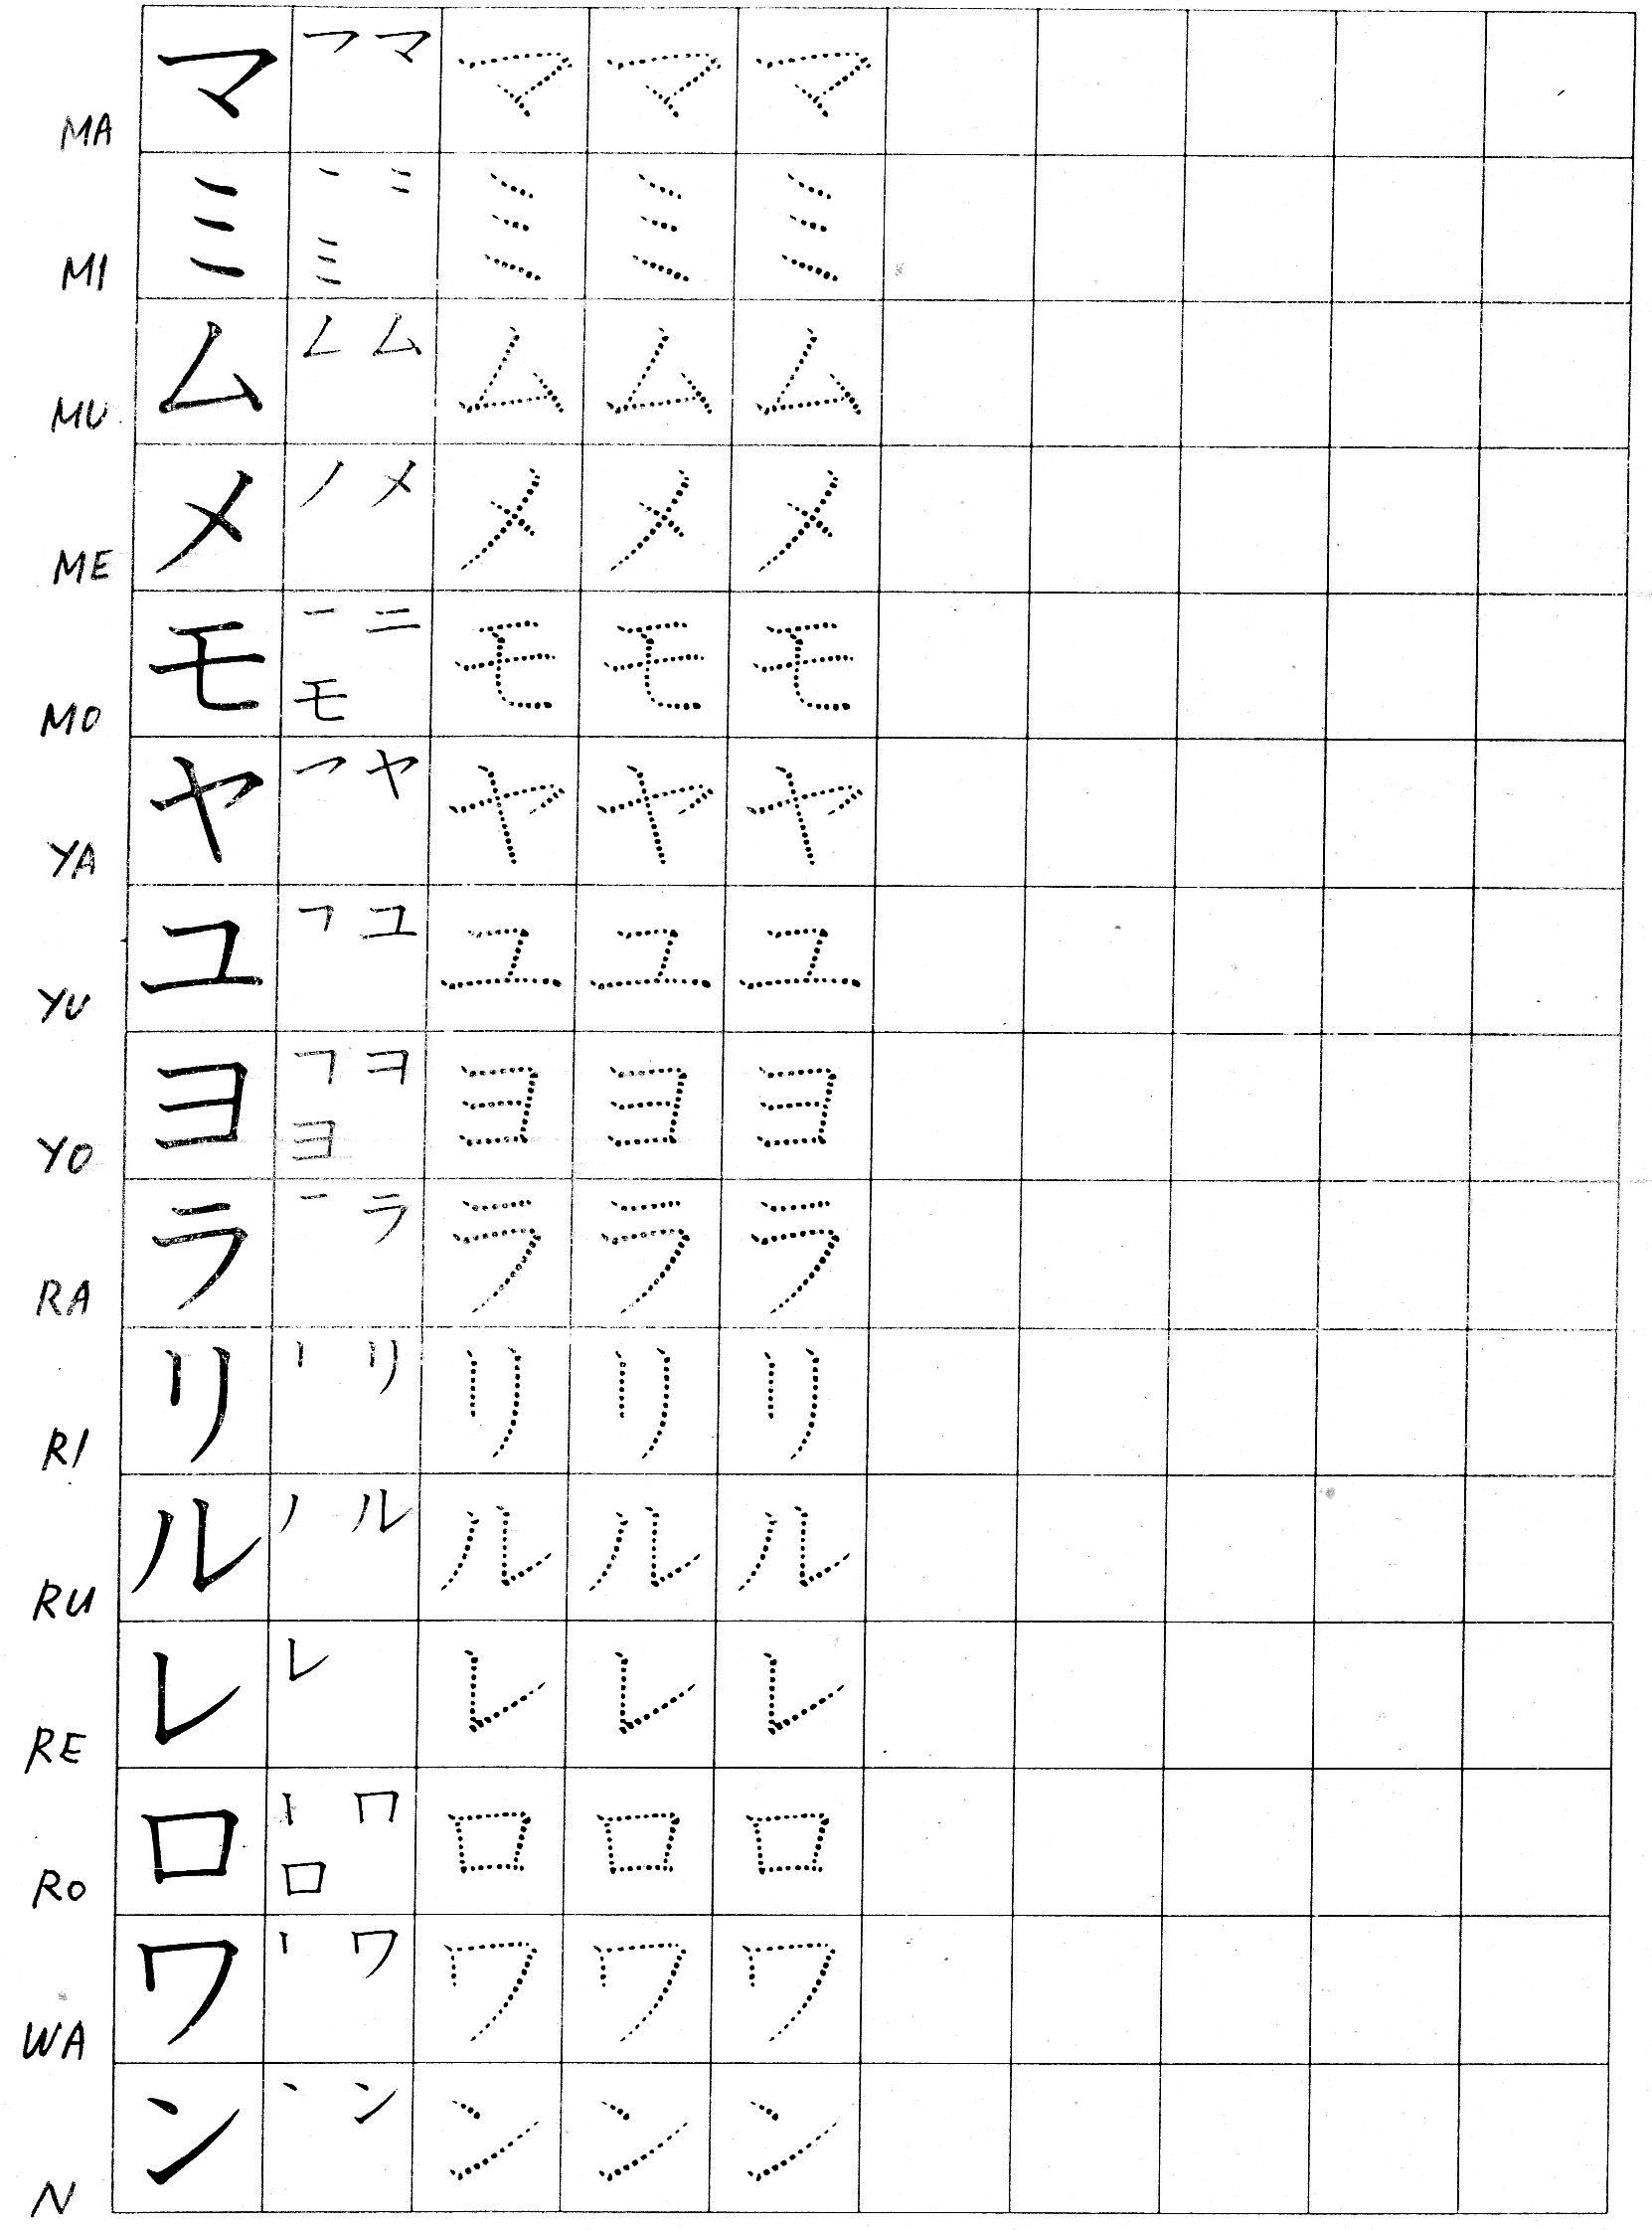 MA マ フ マ マ マ マ
MI ミ ミ ミ ミ ミ
MU ム ム ム ム ム
ME メ ノ メ メ メ メ
MO モ 一 二 モ モ モ モ
YA ヤ ヤ ヤ ヤ ヤ
YU ユ ユ ユ ユ ユ
YO ヨ ヨ ヨ ヨ ヨ
RA ラ 一 ラ ラ ラ ラ
RI リ リ リ リ リ
RU ル ノ ル ル ル ル
RE レ レ レ レ レ
RO ロ ロ ロ ロ ロ
WA ワ ワ ワ ワ ワ
N ン 丶 ン ン ン ン